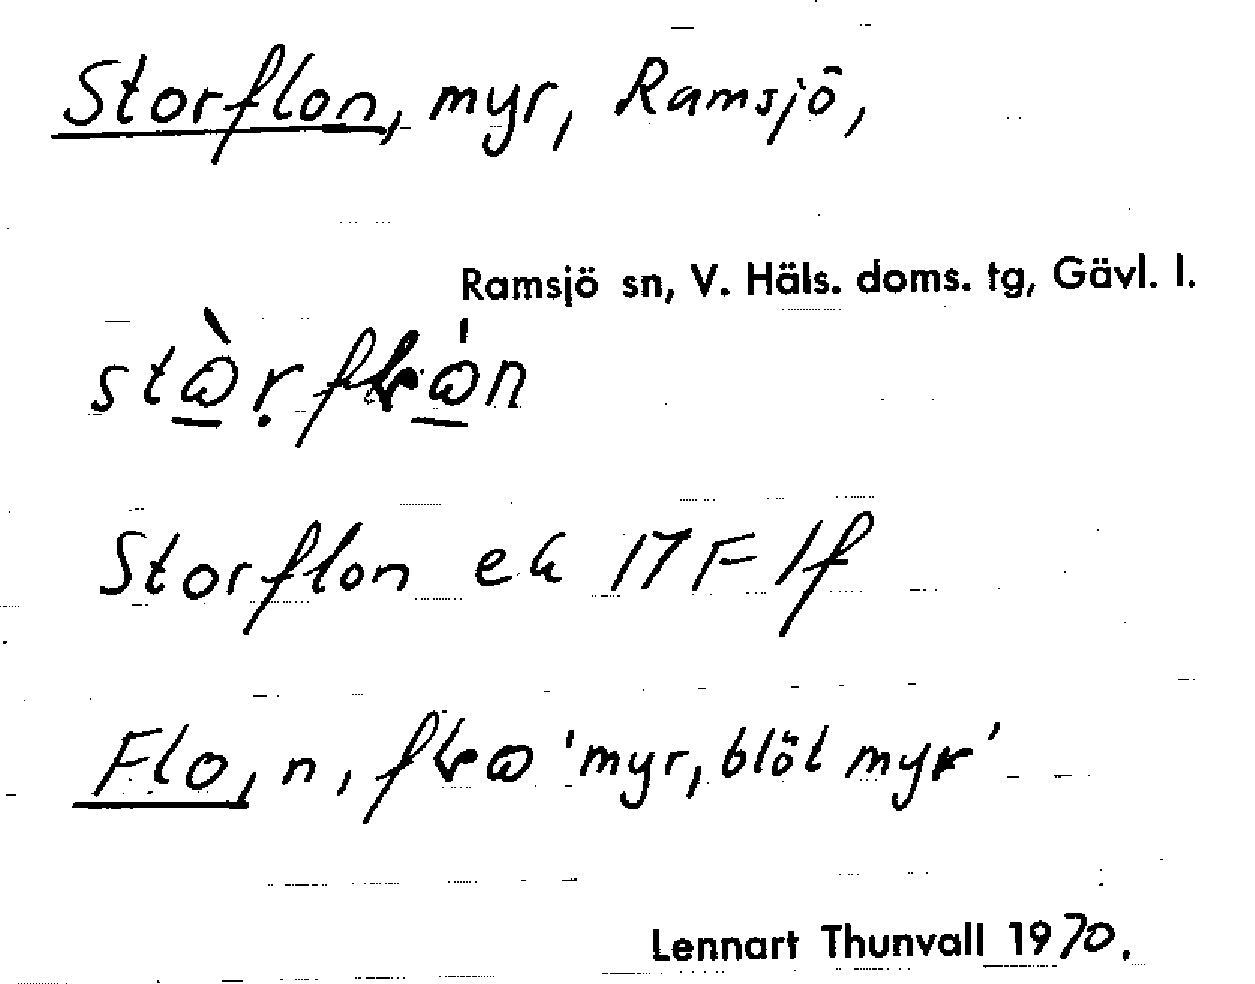 Storflon, myr, Ramsjö,
Ramsjö sn, V. Häls. doms. tg, Gävl. l.
Storflon ek 17F 1f
Flo, n, 'myr, blöt myr'
Lennart Thunvall 1970.